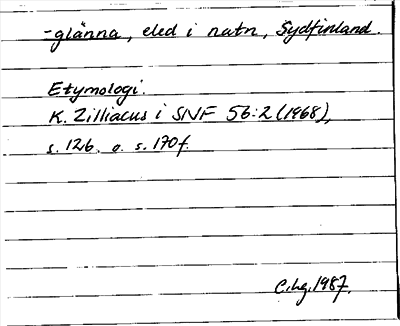 -glänna, eled i natn, Sydfinland.
Etymologi:
K. Zilliacus i SNF 56:2 (1968),
s. 126. o. s. 170f.
C.hg. 1987.